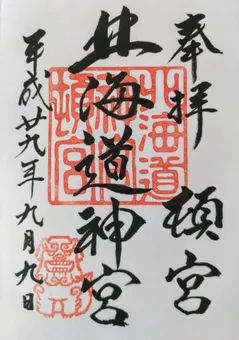 奉拝 頓宮
北海道神宮
平成廿九年九月九日
北海道神宮頓宮